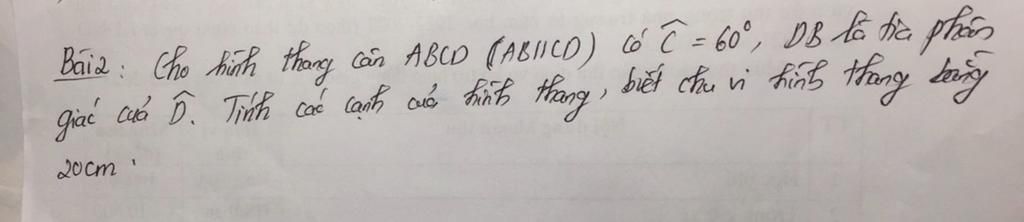 Bài 2: Cho hình thang cân ABCD (AB//CD) có Ĉ = 60°, DB là tia phân
giác của D̂. Tính các cạnh của hình thang, biết chu vi hình thang bằng
20cm.